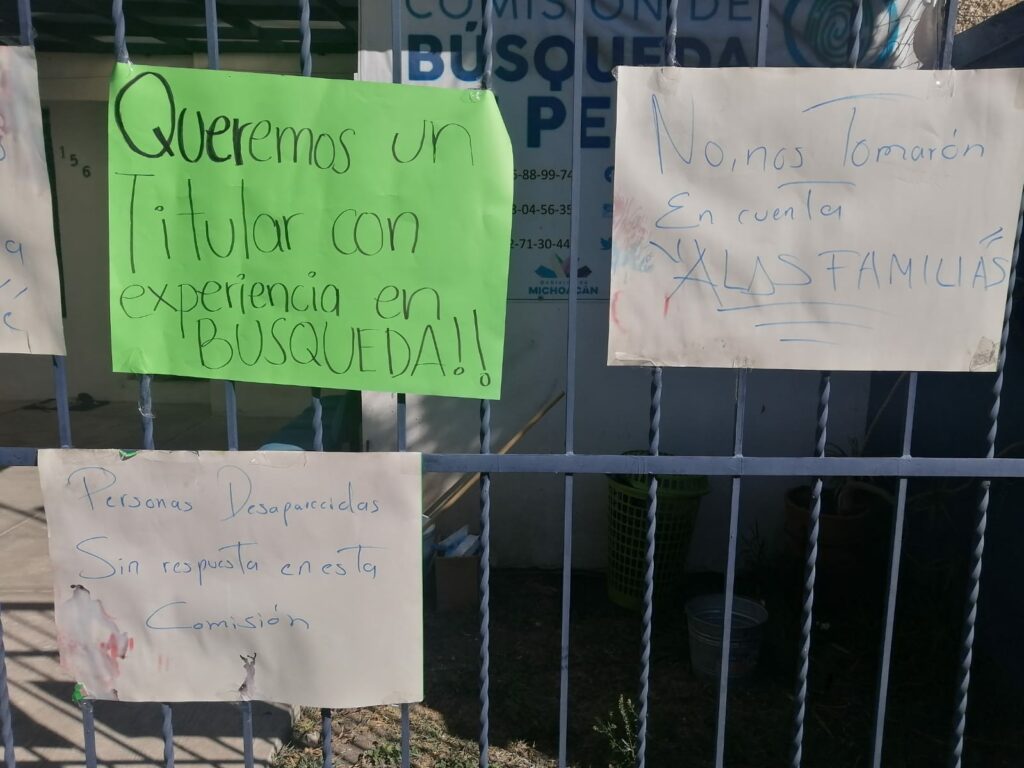 COMISIÓN DE
BÚSQUEDA
PE
88-99-74
04-56-35
2-71-30-44
MICHOACÁN
156
Queremos un
Titular con
experiencia en
BUSQUEDA!!
No, nos Tomarón
En cuenta
"A LAS FAMILIAS"
a
é
Personas Desaparecidas
Sin respuesta en esta
Comisión